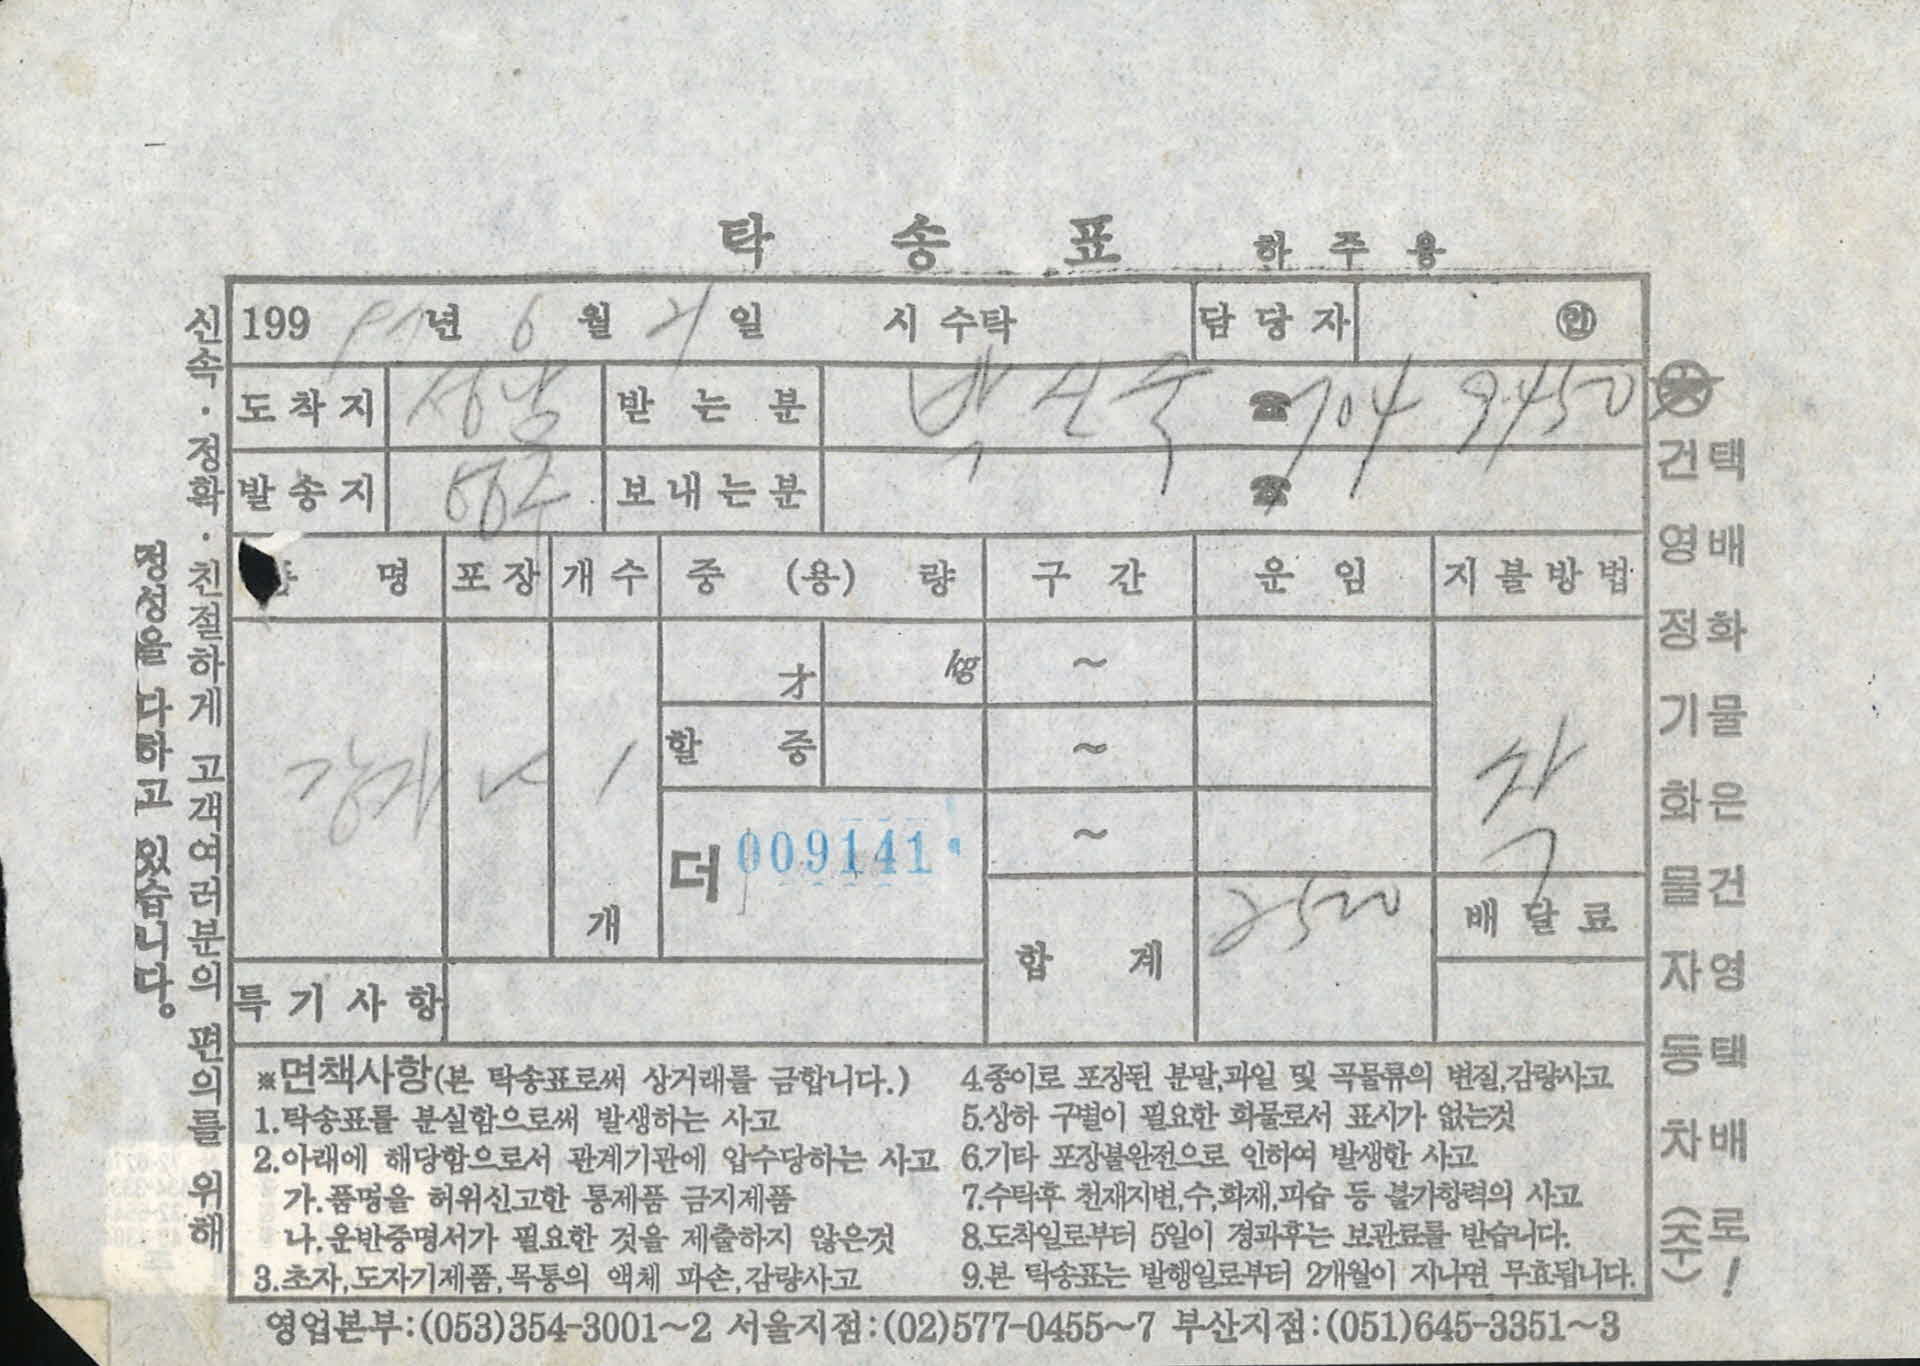 탁송표 하주용
199 97년 6월 21일 시 수탁 담당자 ㊞
도착지 성남 받는분 박 숙 ☎704 9450
발송지 보내는분 ☎
명 포장 개수 중(용)량 구간 운임 지불방법
才 kg ~
할 중 ~
1 착
더 009141 ~
개 합계 2500 배달료
특기사항
※면책사항(본 탁송표로써 상거래를 금합니다.)
1.탁송표를 분실함으로써 발생하는 사고
2.아래에 해당함으로서 관계기관에 압수당하는 사고
가.품명을 허위신고한 통제품 금지제품
나.운반증명서가 필요한 것을 제출하지 않은것
3.초자,도자기제품,목통의 액체 파손,감량사고
4.종이로 포장된 분말,과일 및 곡물류의 변질,감량사고
5.상하 구별이 필요한 화물로서 표시가 없는것
6.기타 포장불완전으로 인하여 발생한 사고
7.수탁후 천재지변,수,화재,피습 등 불가항력의 사고
8.도착일로부터 5일이 경과후는 보관료를 받습니다.
9.본 탁송표는 발행일로부터 2개월이 지나면 무효됩니다.
영업본부:(053)354-3001~2 서울지점:(02)577-0455~7 부산지점:(051)645-3351~3
신속·정확·친절하게 고객여러분의 편의를 위해
정성을 다하고 있습니다.
택배화물은 건영택배로!
건영정기화물자동차(주)